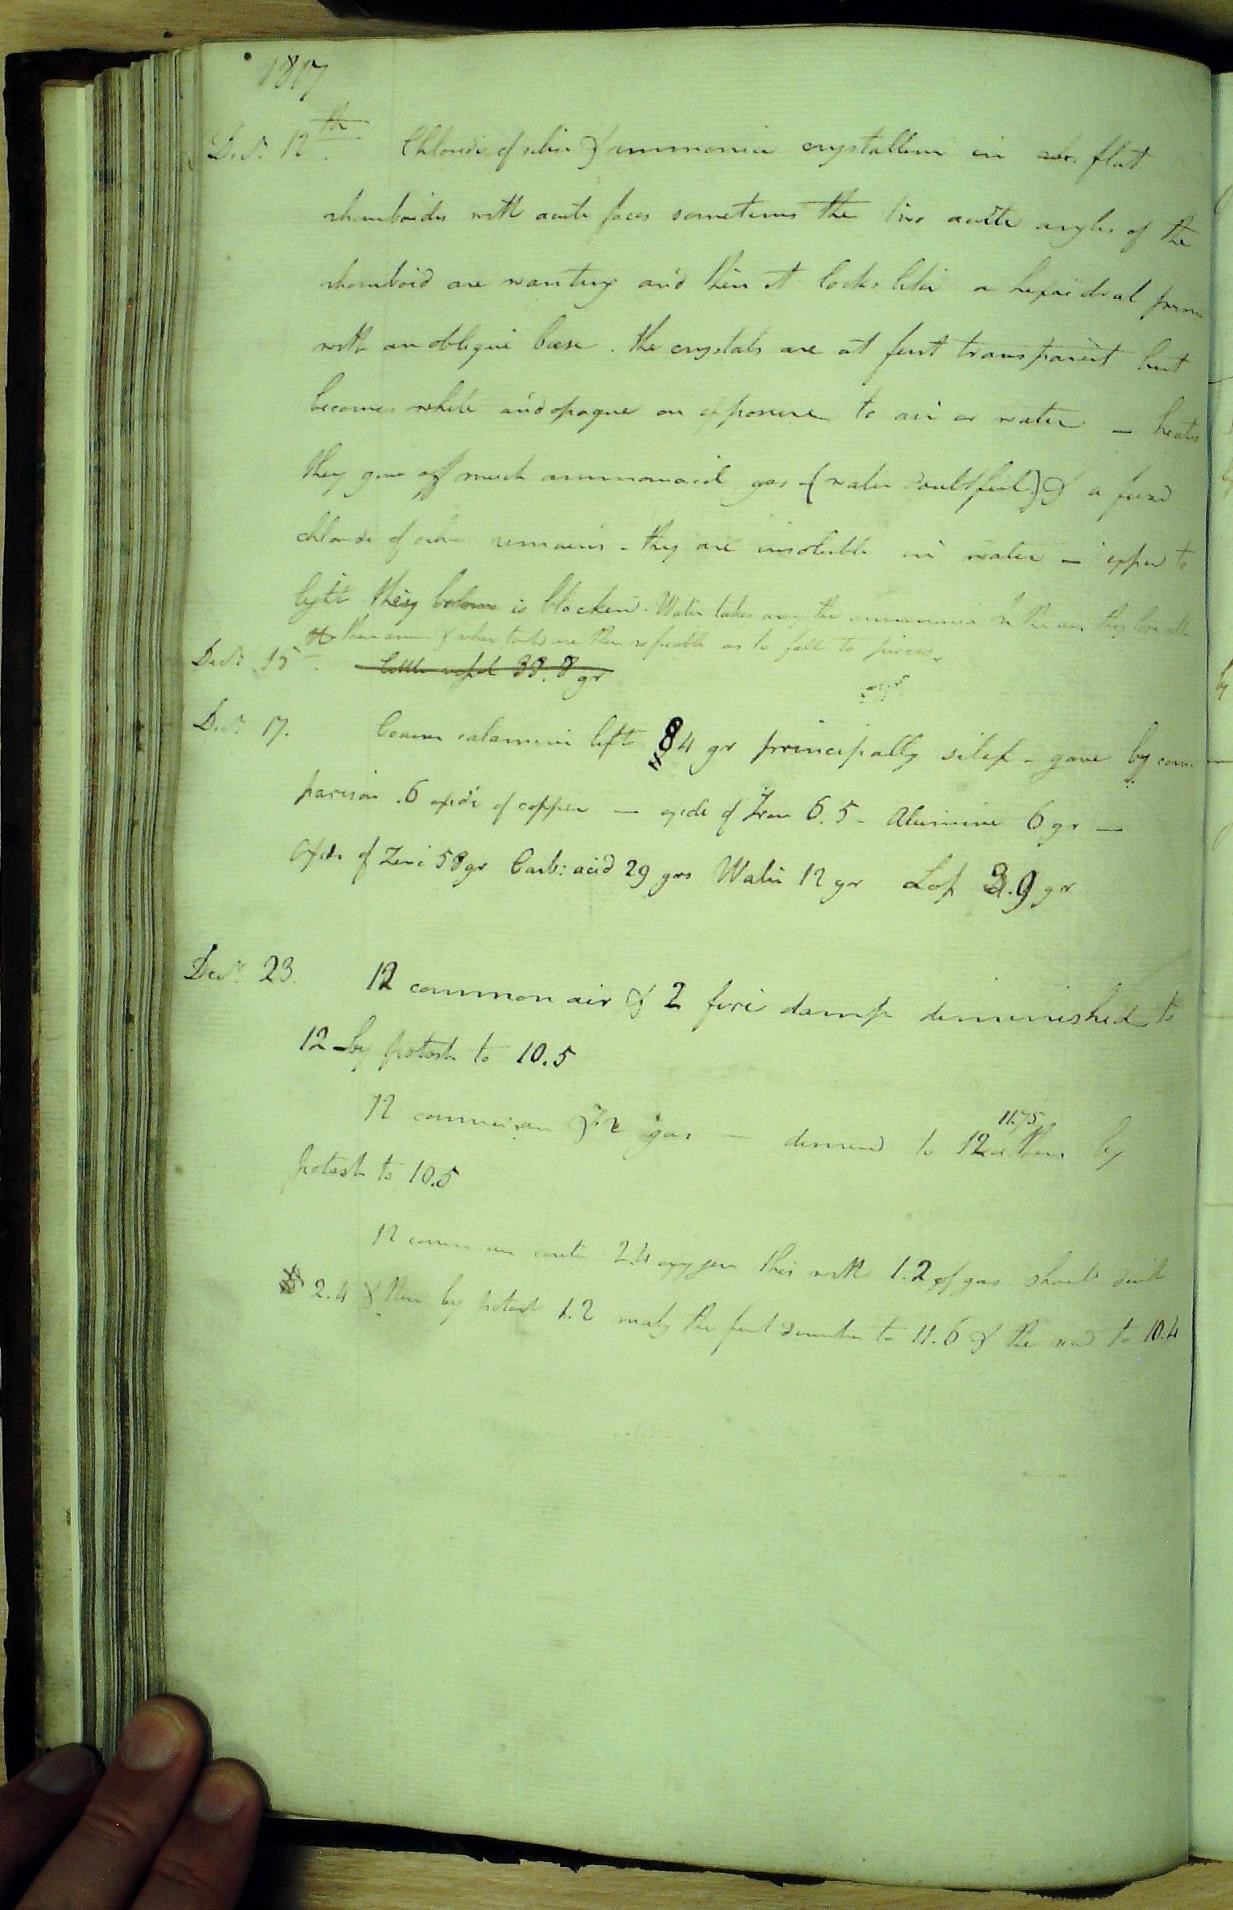 1817
Decr. 12th. Chloride of silver & ammonia crystallises in flat
rhomboides with acute faces sometimes the two acute angles of the
rhomboid are wanting and then it looks like a hexaëdral prism
with an oblique base. the crystals are at first transparent but
becomes white and opaque on exposure to air or water — heated
they give off much ammoniacal gas - (water doubtful) & a fused
chloride of silver remains - they are insoluble in water — exposed to
light they is blackened. Water takes away the ammonia In the air they lose all
their ammonia & when touched are then so friable as to fall to pieces.
Decr. 15th. Bottle 38.8 gr
Decr. 17. Coarse calamine left 84 gr principally silex - gave by com-
parison .6 oxide of copper — oxide of Iron 6.5 - Alumine 6 gr —
Oxide of Zinc 58 gr Carb: acid 29 grs Water 12 gr Loss 3.9 gr
Decr. 23. 12 common air & 2 fire damp diminished to
12 - by potash to 10.5
12 common air & 2 gas — dimind to 12 11.75 then by
potash to 10.5
12 common air 2.4 oxygen this with 1.2 of gas should dimh
2.4 & then by potash 1.2 making the first diminution to 11.6 & the 2nd to 10.4